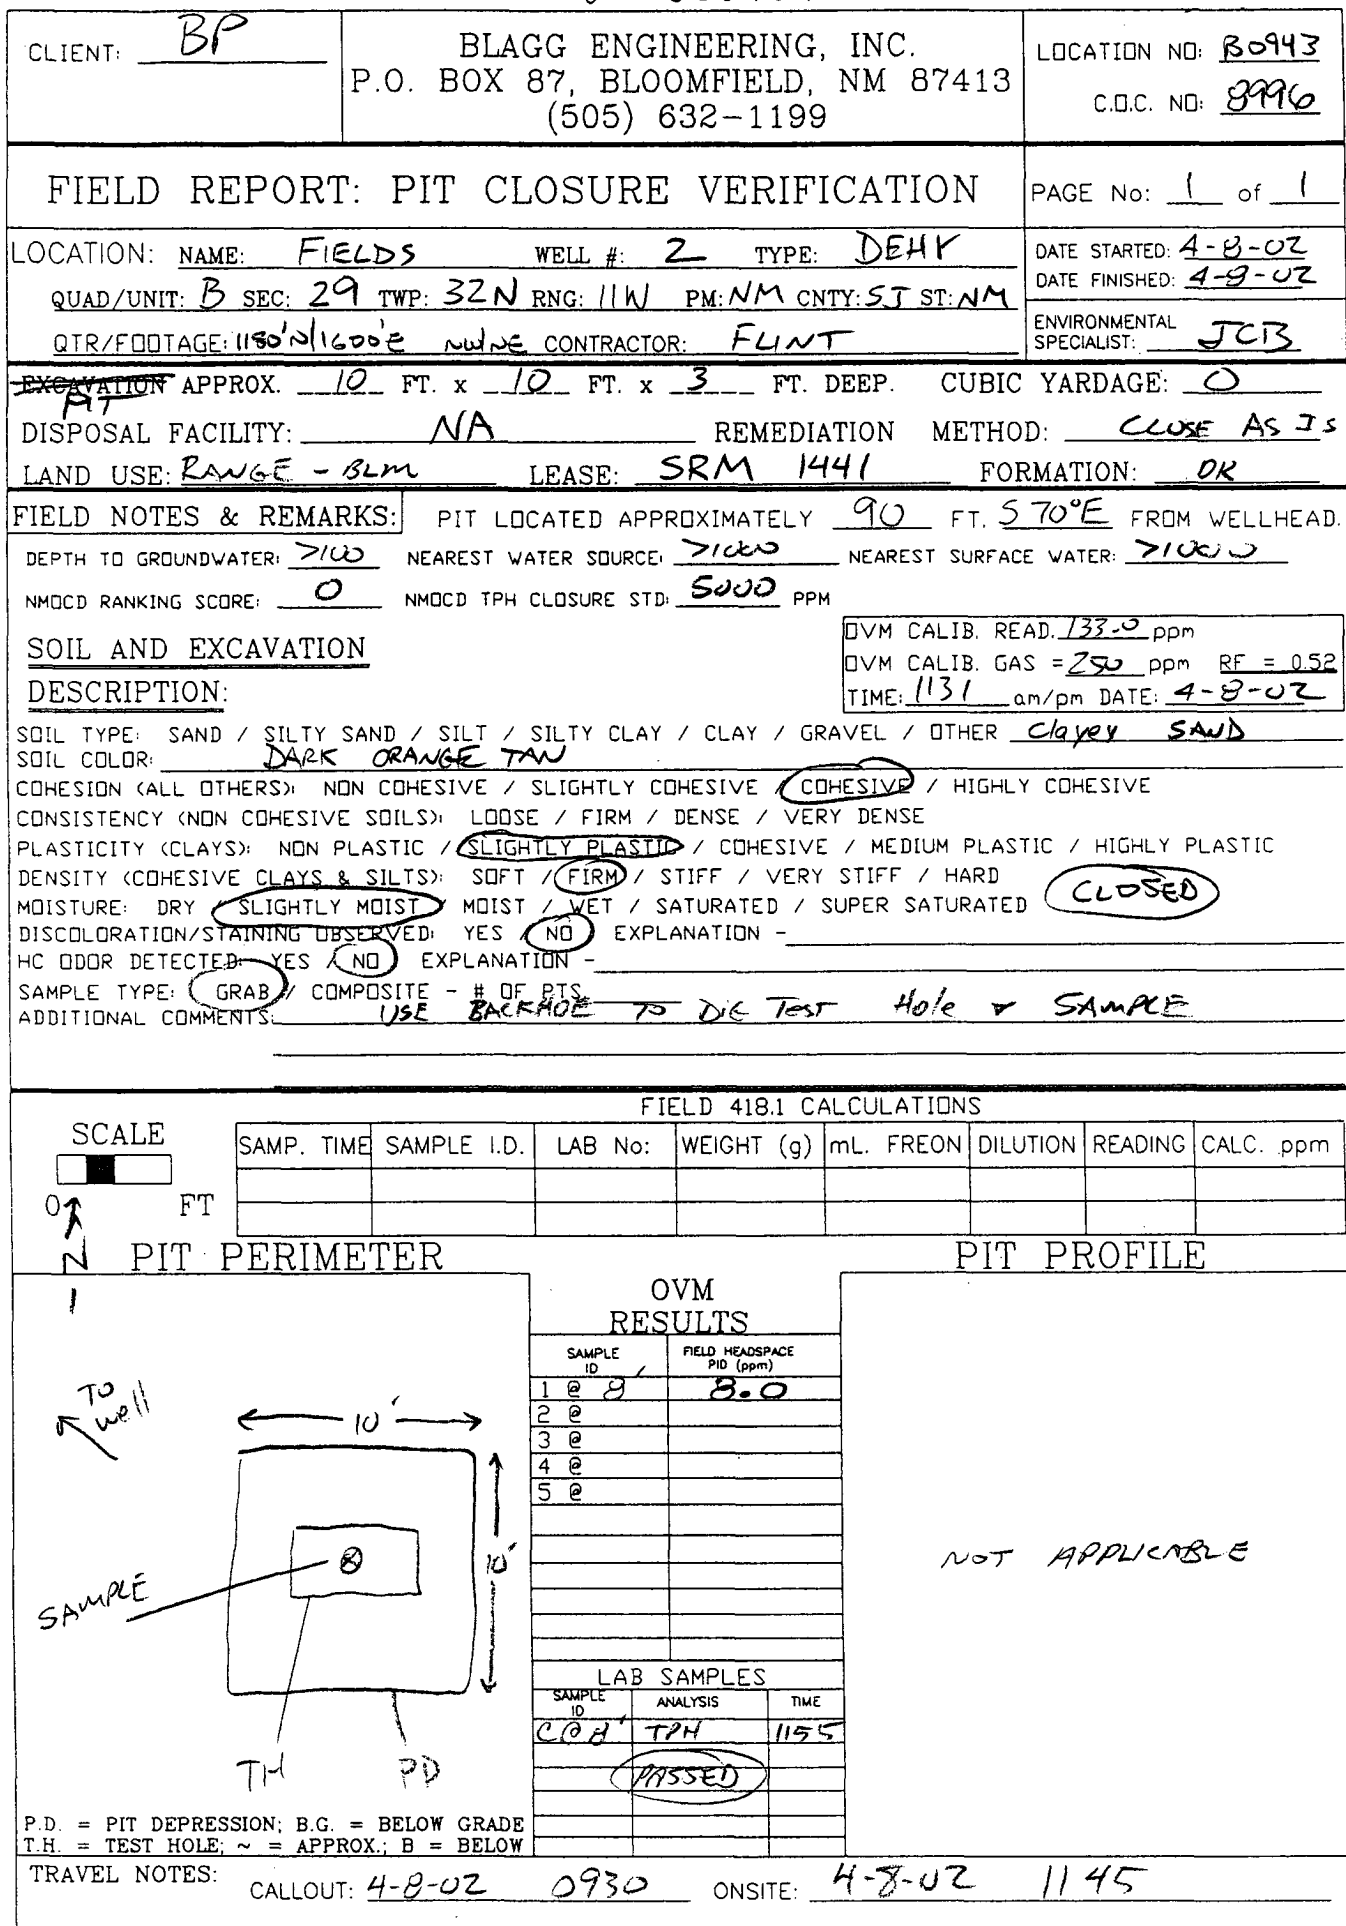 CLIENT: BP
BLAGG ENGINEERING, INC.
P.O. BOX 87, BLOOMFIELD, NM 87413
(505) 632-1199
LOCATION NO: B0943
C.O.C. NO: 8996
FIELD REPORT: PIT CLOSURE VERIFICATION
PAGE No: 1 of 1
LOCATION: NAME: FIELDS WELL #: 2 TYPE: DEHY
QUAD/UNIT: B SEC: 29 TWP: 32N RNG: 11W PM: NM CNTY: SJ ST: NM
QTR/FOOTAGE: 1180'N/1600'E NW/NE CONTRACTOR: FLINT
DATE STARTED: 4-8-02
DATE FINISHED: 4-8-02
ENVIRONMENTAL
SPECIALIST: JCB
EXCAVATION APPROX. 10 FT. x 10 FT. x 3 FT. DEEP. CUBIC YARDAGE: 0
PIT
DISPOSAL FACILITY: NA REMEDIATION METHOD: CLOSE AS IS
LAND USE: RANGE - BLM LEASE: SRM 1441 FORMATION: DK
FIELD NOTES & REMARKS: PIT LOCATED APPROXIMATELY 90 FT. S70°E FROM WELLHEAD.
DEPTH TO GROUNDWATER: >100 NEAREST WATER SOURCE: >1000 NEAREST SURFACE WATER: >1000
NMOCD RANKING SCORE: 0 NMOCD TPH CLOSURE STD: 5000 PPM
SOIL AND EXCAVATION
DESCRIPTION:
OVM CALIB. READ. 133.0 ppm
OVM CALIB. GAS = 250 ppm RF = 0.52
TIME: 1131 am/pm DATE: 4-8-02
SOIL TYPE: SAND / SILTY SAND / SILT / SILTY CLAY / CLAY / GRAVEL / OTHER Clayey SAND
SOIL COLOR: DARK ORANGE TAN
COHESION (ALL OTHERS): NON COHESIVE / SLIGHTLY COHESIVE / COHESIVE / HIGHLY COHESIVE
CONSISTENCY (NON COHESIVE SOILS): LOOSE / FIRM / DENSE / VERY DENSE
PLASTICITY (CLAYS): NON PLASTIC / SLIGHTLY PLASTIC / COHESIVE / MEDIUM PLASTIC / HIGHLY PLASTIC
DENSITY (COHESIVE CLAYS & SILTS): SOFT / FIRM / STIFF / VERY STIFF / HARD
MOISTURE: DRY / SLIGHTLY MOIST / MOIST / WET / SATURATED / SUPER SATURATED CLOSED
DISCOLORATION/STAINING OBSERVED: YES / NO EXPLANATION -
HC ODOR DETECTED: YES / NO EXPLANATION -
SAMPLE TYPE: GRAB / COMPOSITE - # OF PTS.
ADDITIONAL COMMENTS: USE BACKHOE TO DIG Test Hole & SAMPLE
FIELD 418.1 CALCULATIONS
SCALE
0 FT
SAMP. TIME SAMPLE I.D. LAB No: WEIGHT (g) mL. FREON DILUTION READING CALC. ppm
N
PIT PERIMETER
PIT PROFILE
OVM
RESULTS
SAMPLE ID FIELD HEADSPACE PID (ppm)
1 @ 8' 8.0
2 @
3 @
4 @
5 @
TO well
10'
10'
SAMPLE
TH PD
NOT APPLICABLE
LAB SAMPLES
SAMPLE ID ANALYSIS TIME
C@8' TPH 1155
PASSED
P.D. = PIT DEPRESSION; B.G. = BELOW GRADE
T.H. = TEST HOLE; ~ = APPROX.; B = BELOW
TRAVEL NOTES: CALLOUT: 4-8-02 0930 ONSITE: 4-8-02 1145